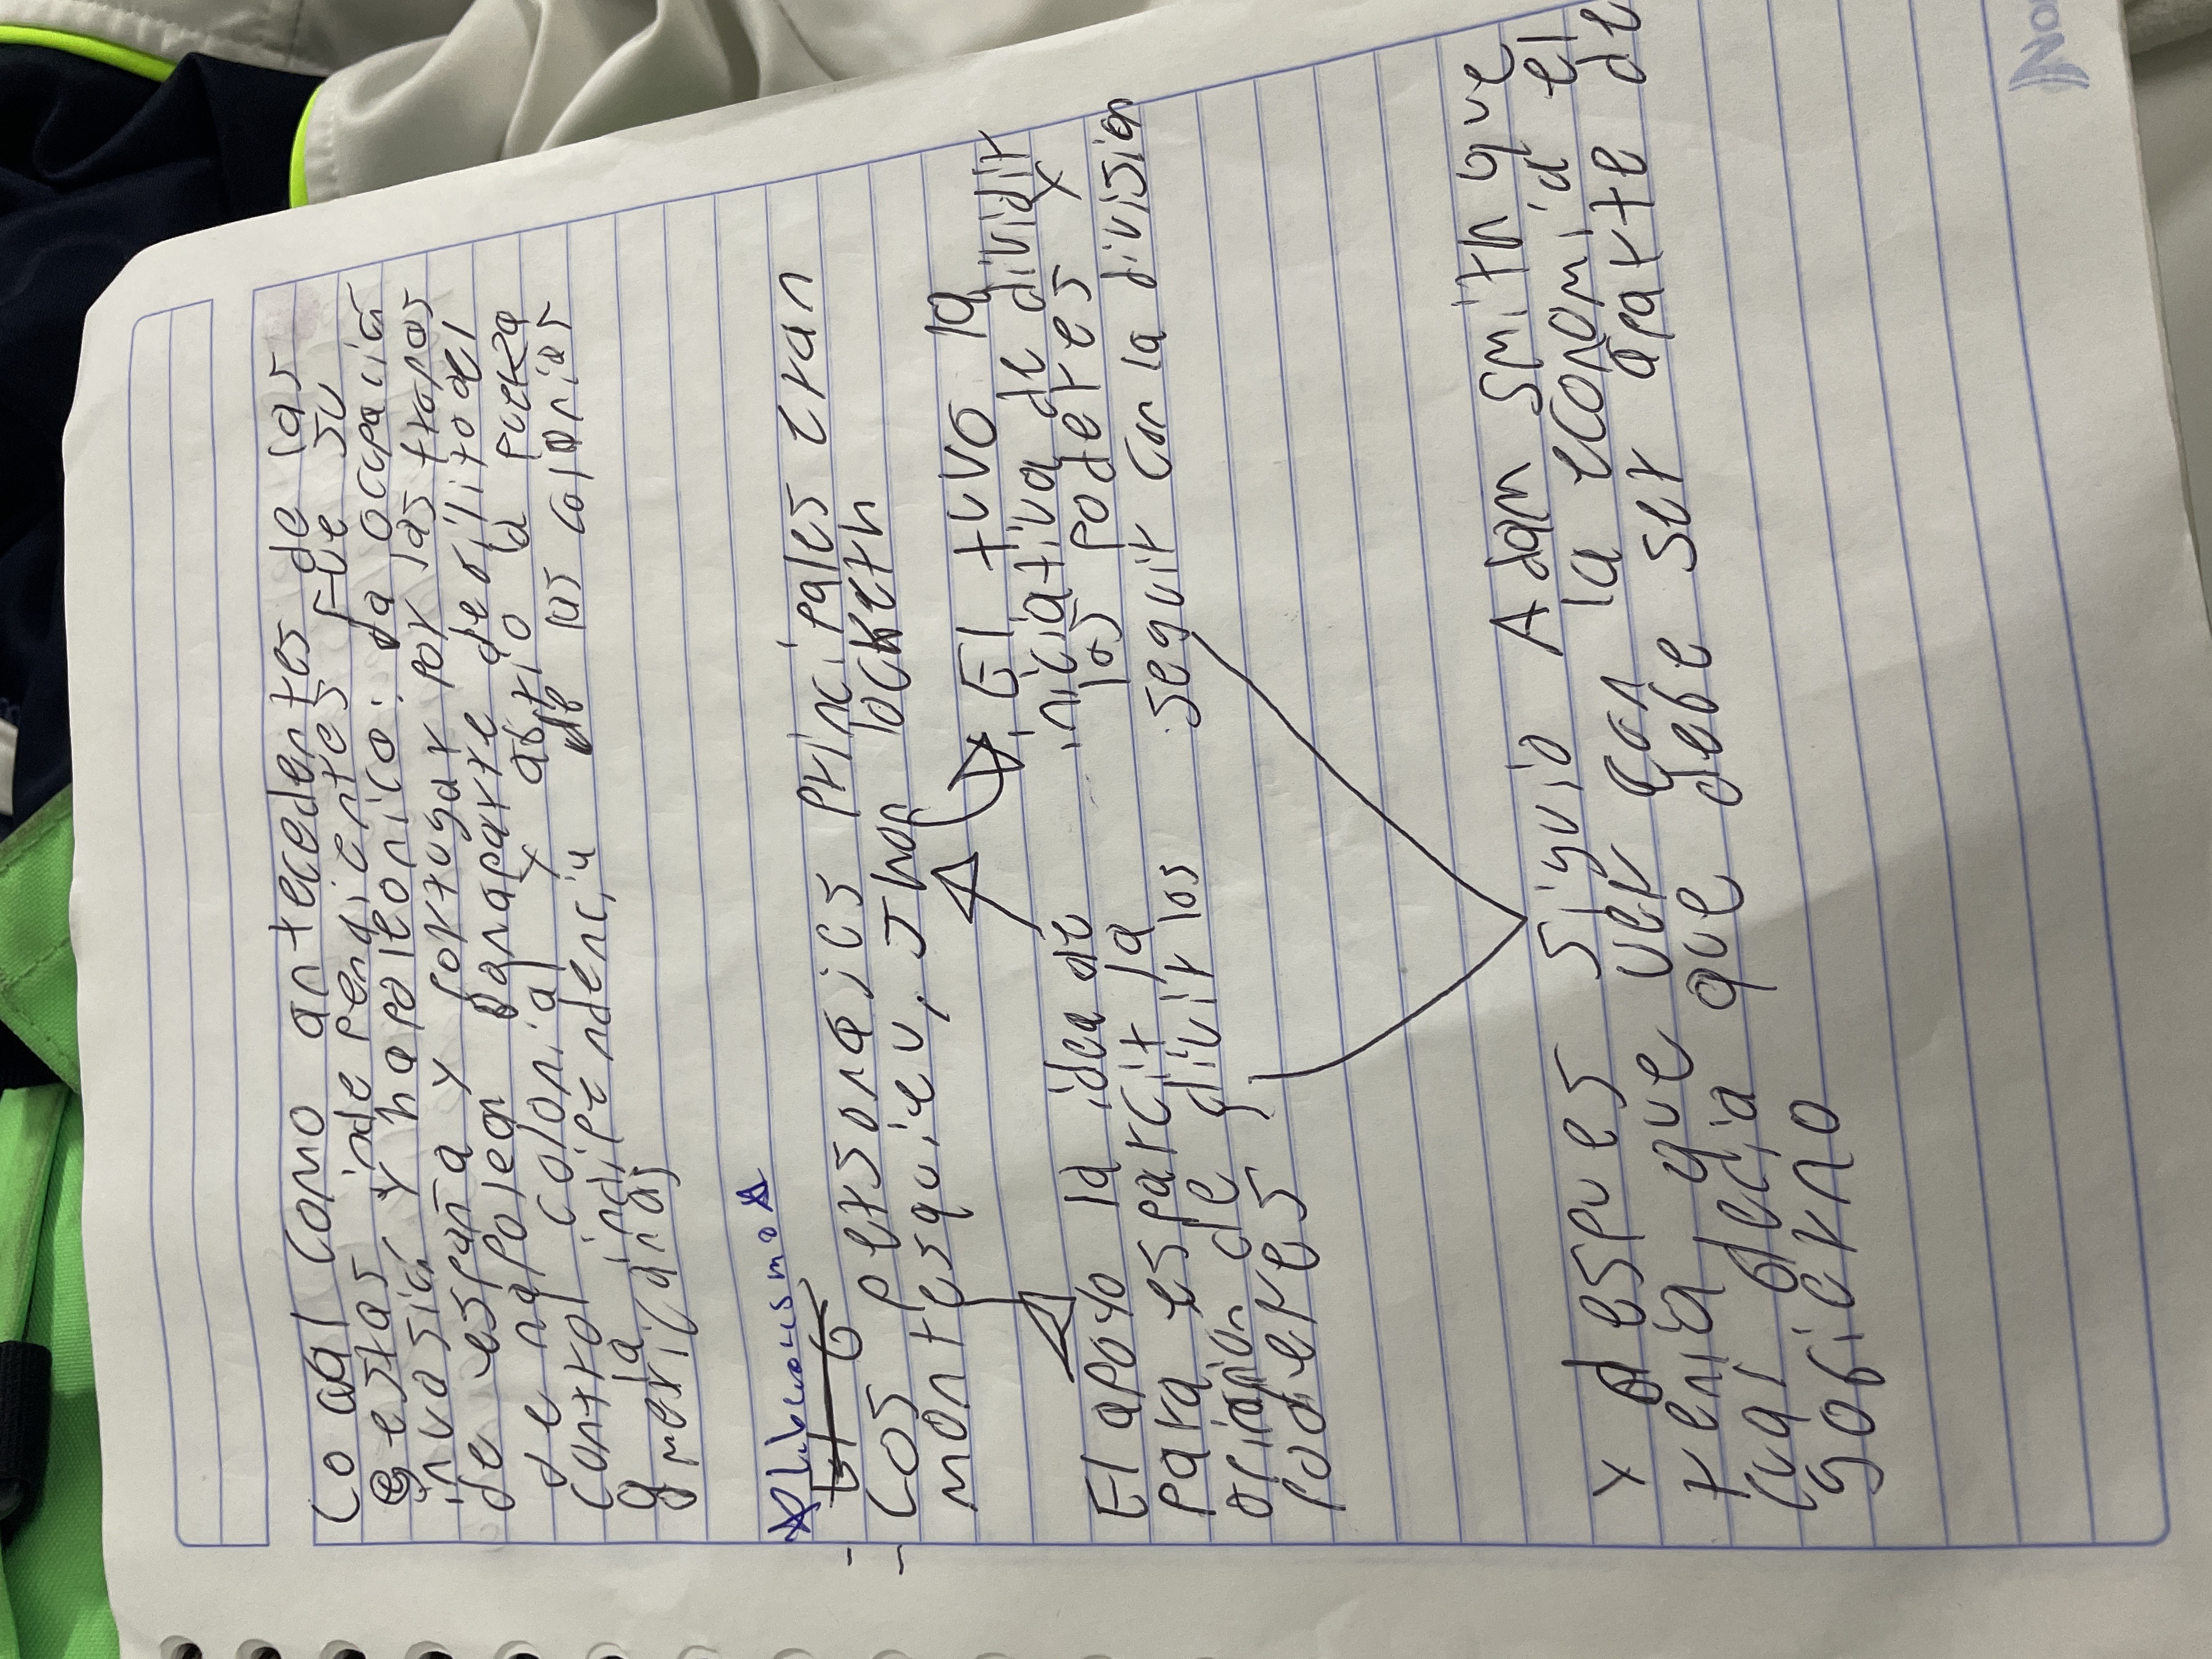 Lo cual como antecedentes de las
estas indepengientes fue su
invasión y napoleonico: la ocupación
de españa y fortugar por las tropas
de napoleon Bonaparte debilito del
control colonial y abrio la puerza
a la indipendencia de las colonias
americanas
☆Liberalismo☆
- Los personajes principales eran
- montesquieu, Jhon locketh
El tuvo la
iniciativa de dividir
los poderes y
seguir con la division
El apoyo la idea de
para esparcir la
opinion de divir los
poderes
y despues siguio Adam Smith que
tenia que ver con la economia el
cual decia que debe ser aparte de
gobierno
Nor